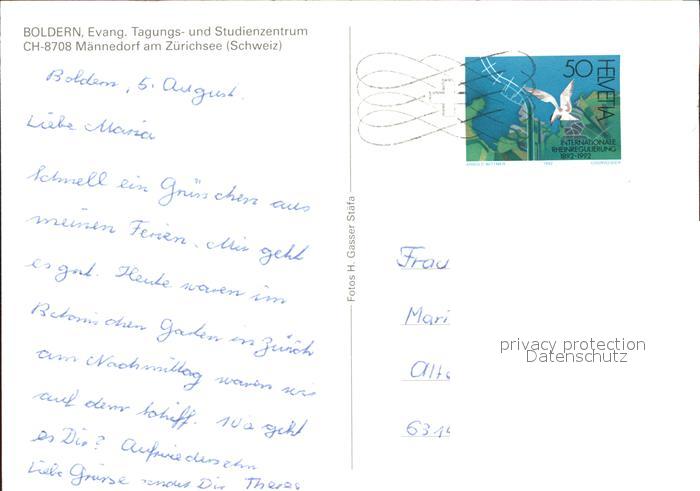 BOLDERN, Evang. Tagungs- und Studienzentrum
CH-8708 Männedorf am Zürichsee (Schweiz)
Boldern, 5. August.
Liebe Maria
Schnell ein Grüsschen aus
meinen Ferien. Mir geht
es gut. Heute waren im
Botanischen Garten in Zürich
am Nachmittag waren wir
auf dem Schiff. Wie geht
es Dir? Aufwiedersehn
Liebe Grüsse sendet Dir Theres
Fotos H. Gasser Stäfa
50
HELVETIA
INTERNATIONALE
RHEINREGULIERUNG
1892-1992
1992
COURVOISIER
Frau
Mari
Alte
631
privacy protection
Datenschutz